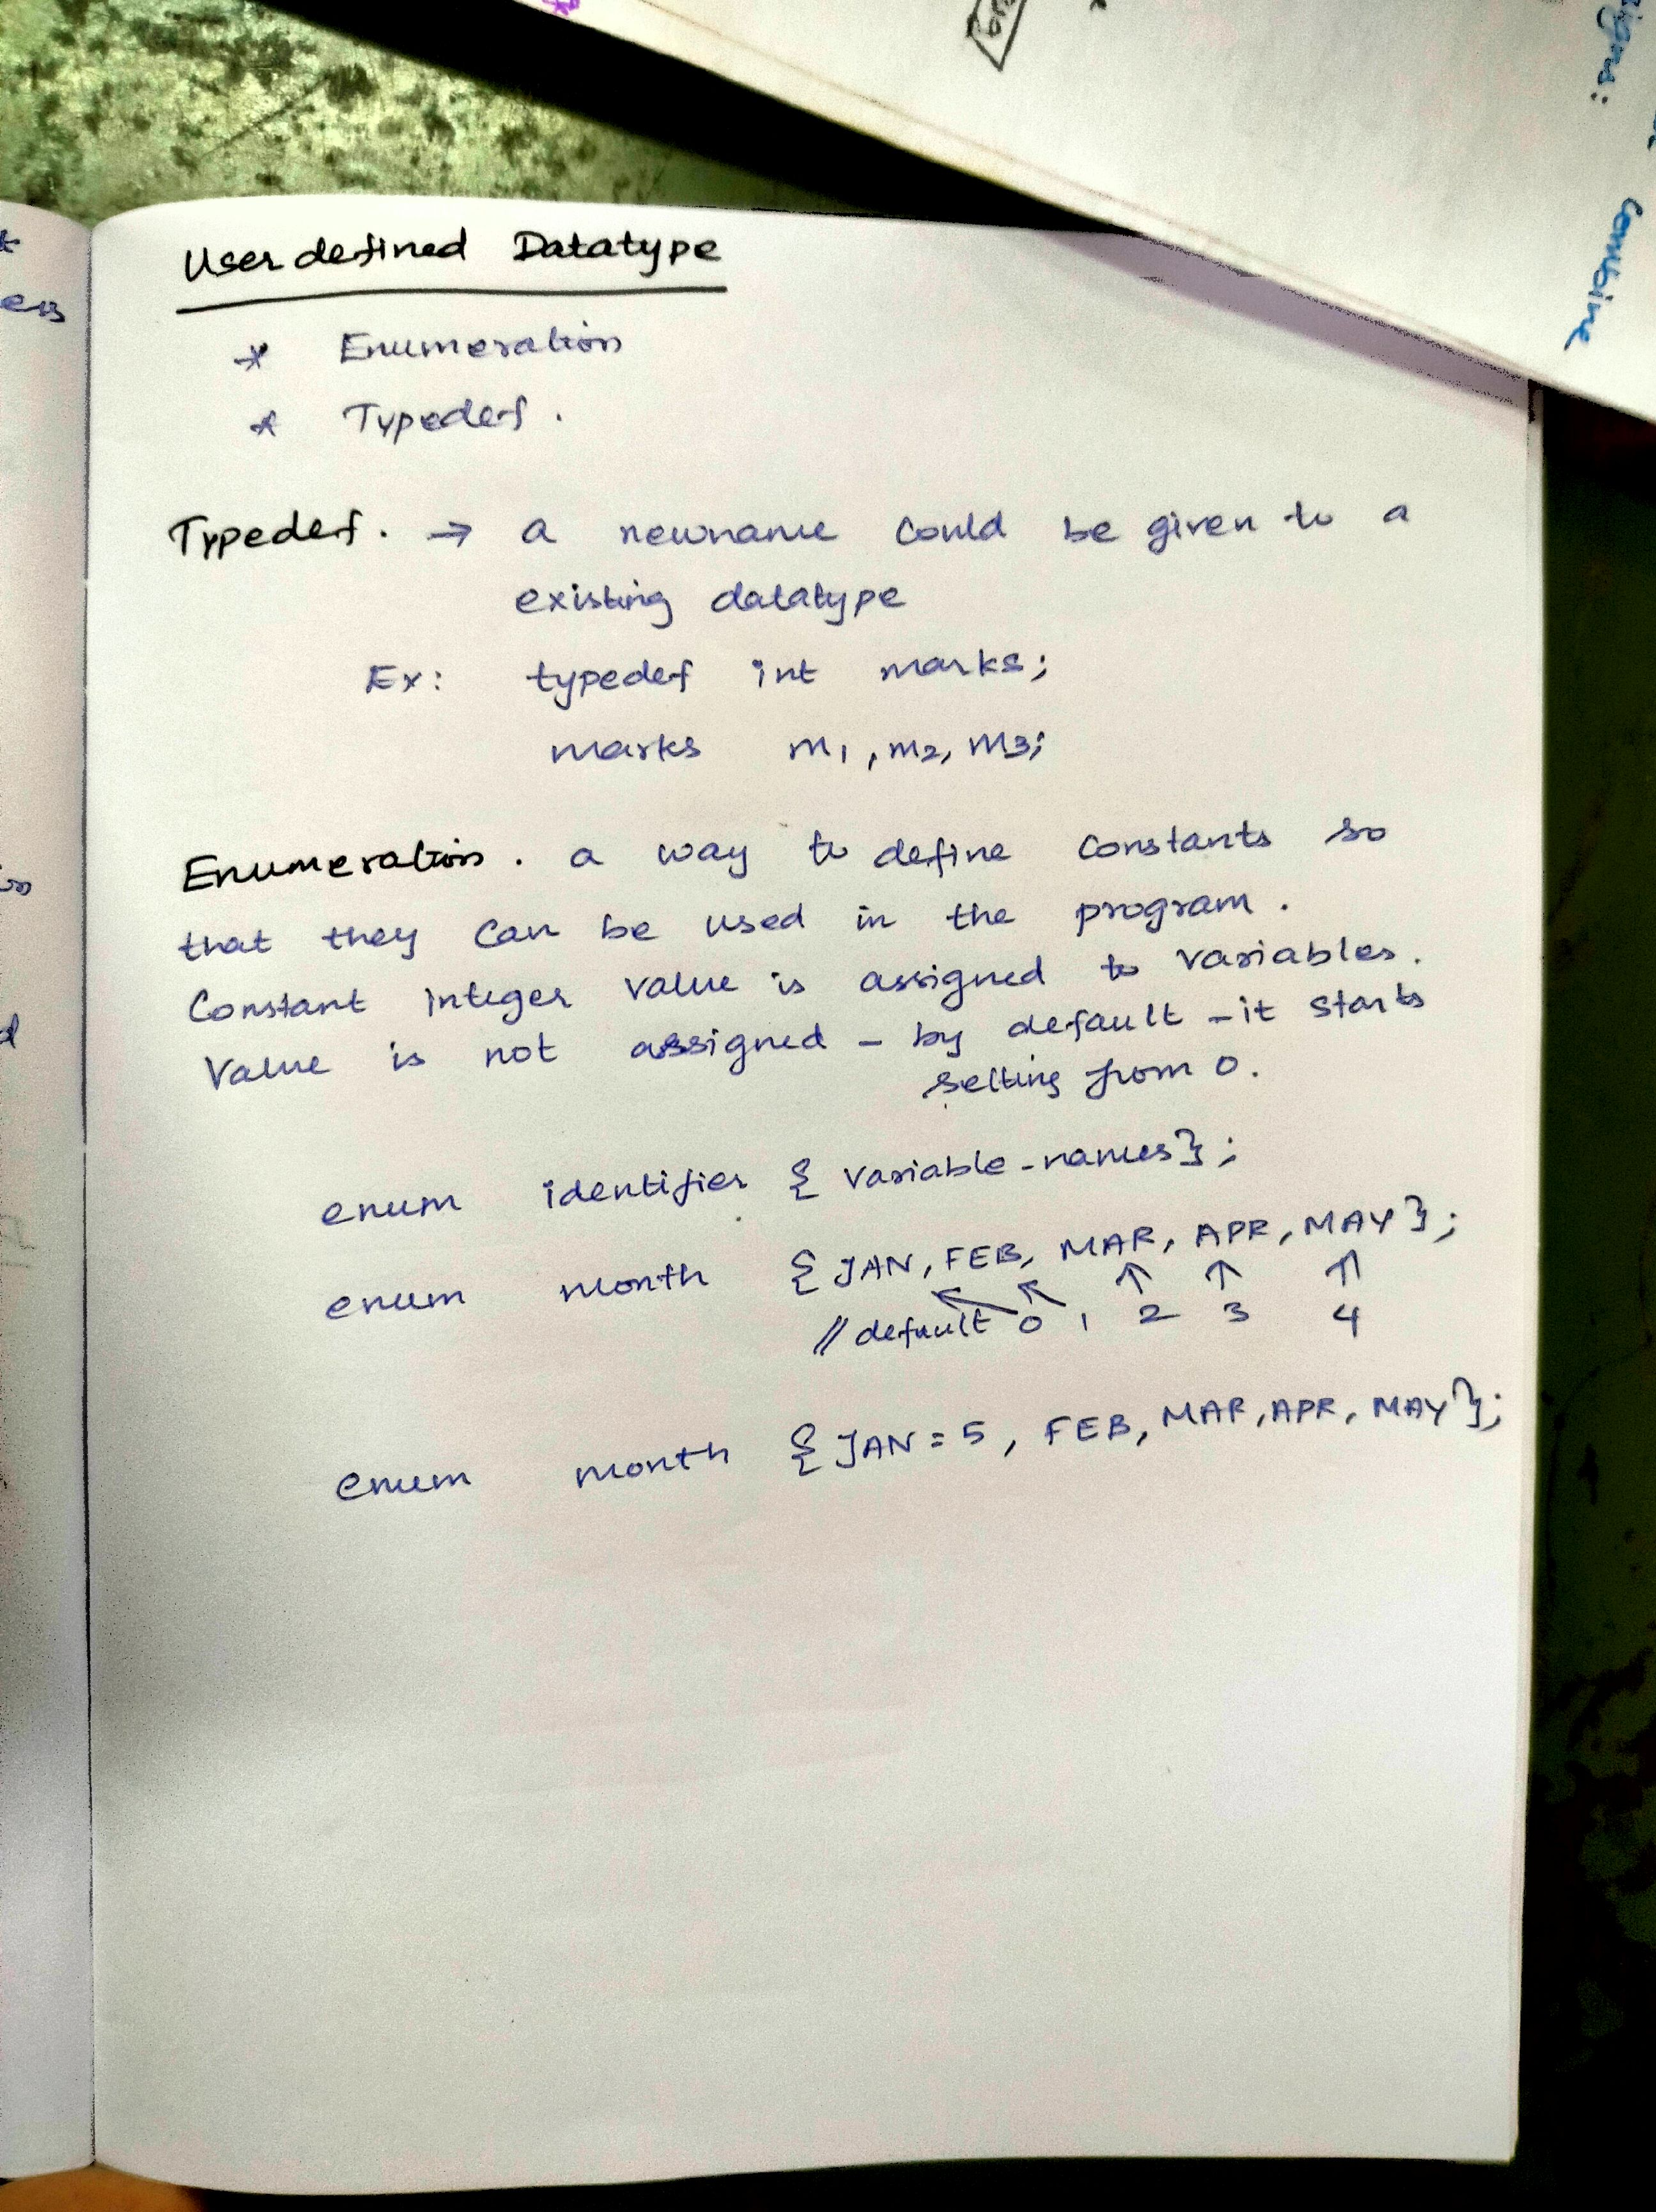 User defined Datatype
* Enumeration
* Typedef.
Typedef. → a newname could be given to a
existing datatype
Ex: typedef int marks;
marks m1, m2, m3;
Enumeration. a way to define constants so
that they can be used in the program.
Constant integer value is assigned to variables.
Value is not assigned - by default - it starts
setting from 0.
enum identifier { variable-names};
enum month { JAN, FEB, MAR, APR, MAY};
// default 0 1 2 3 4
enum month { JAN = 5, FEB, MAR, APR, MAY};
Combine